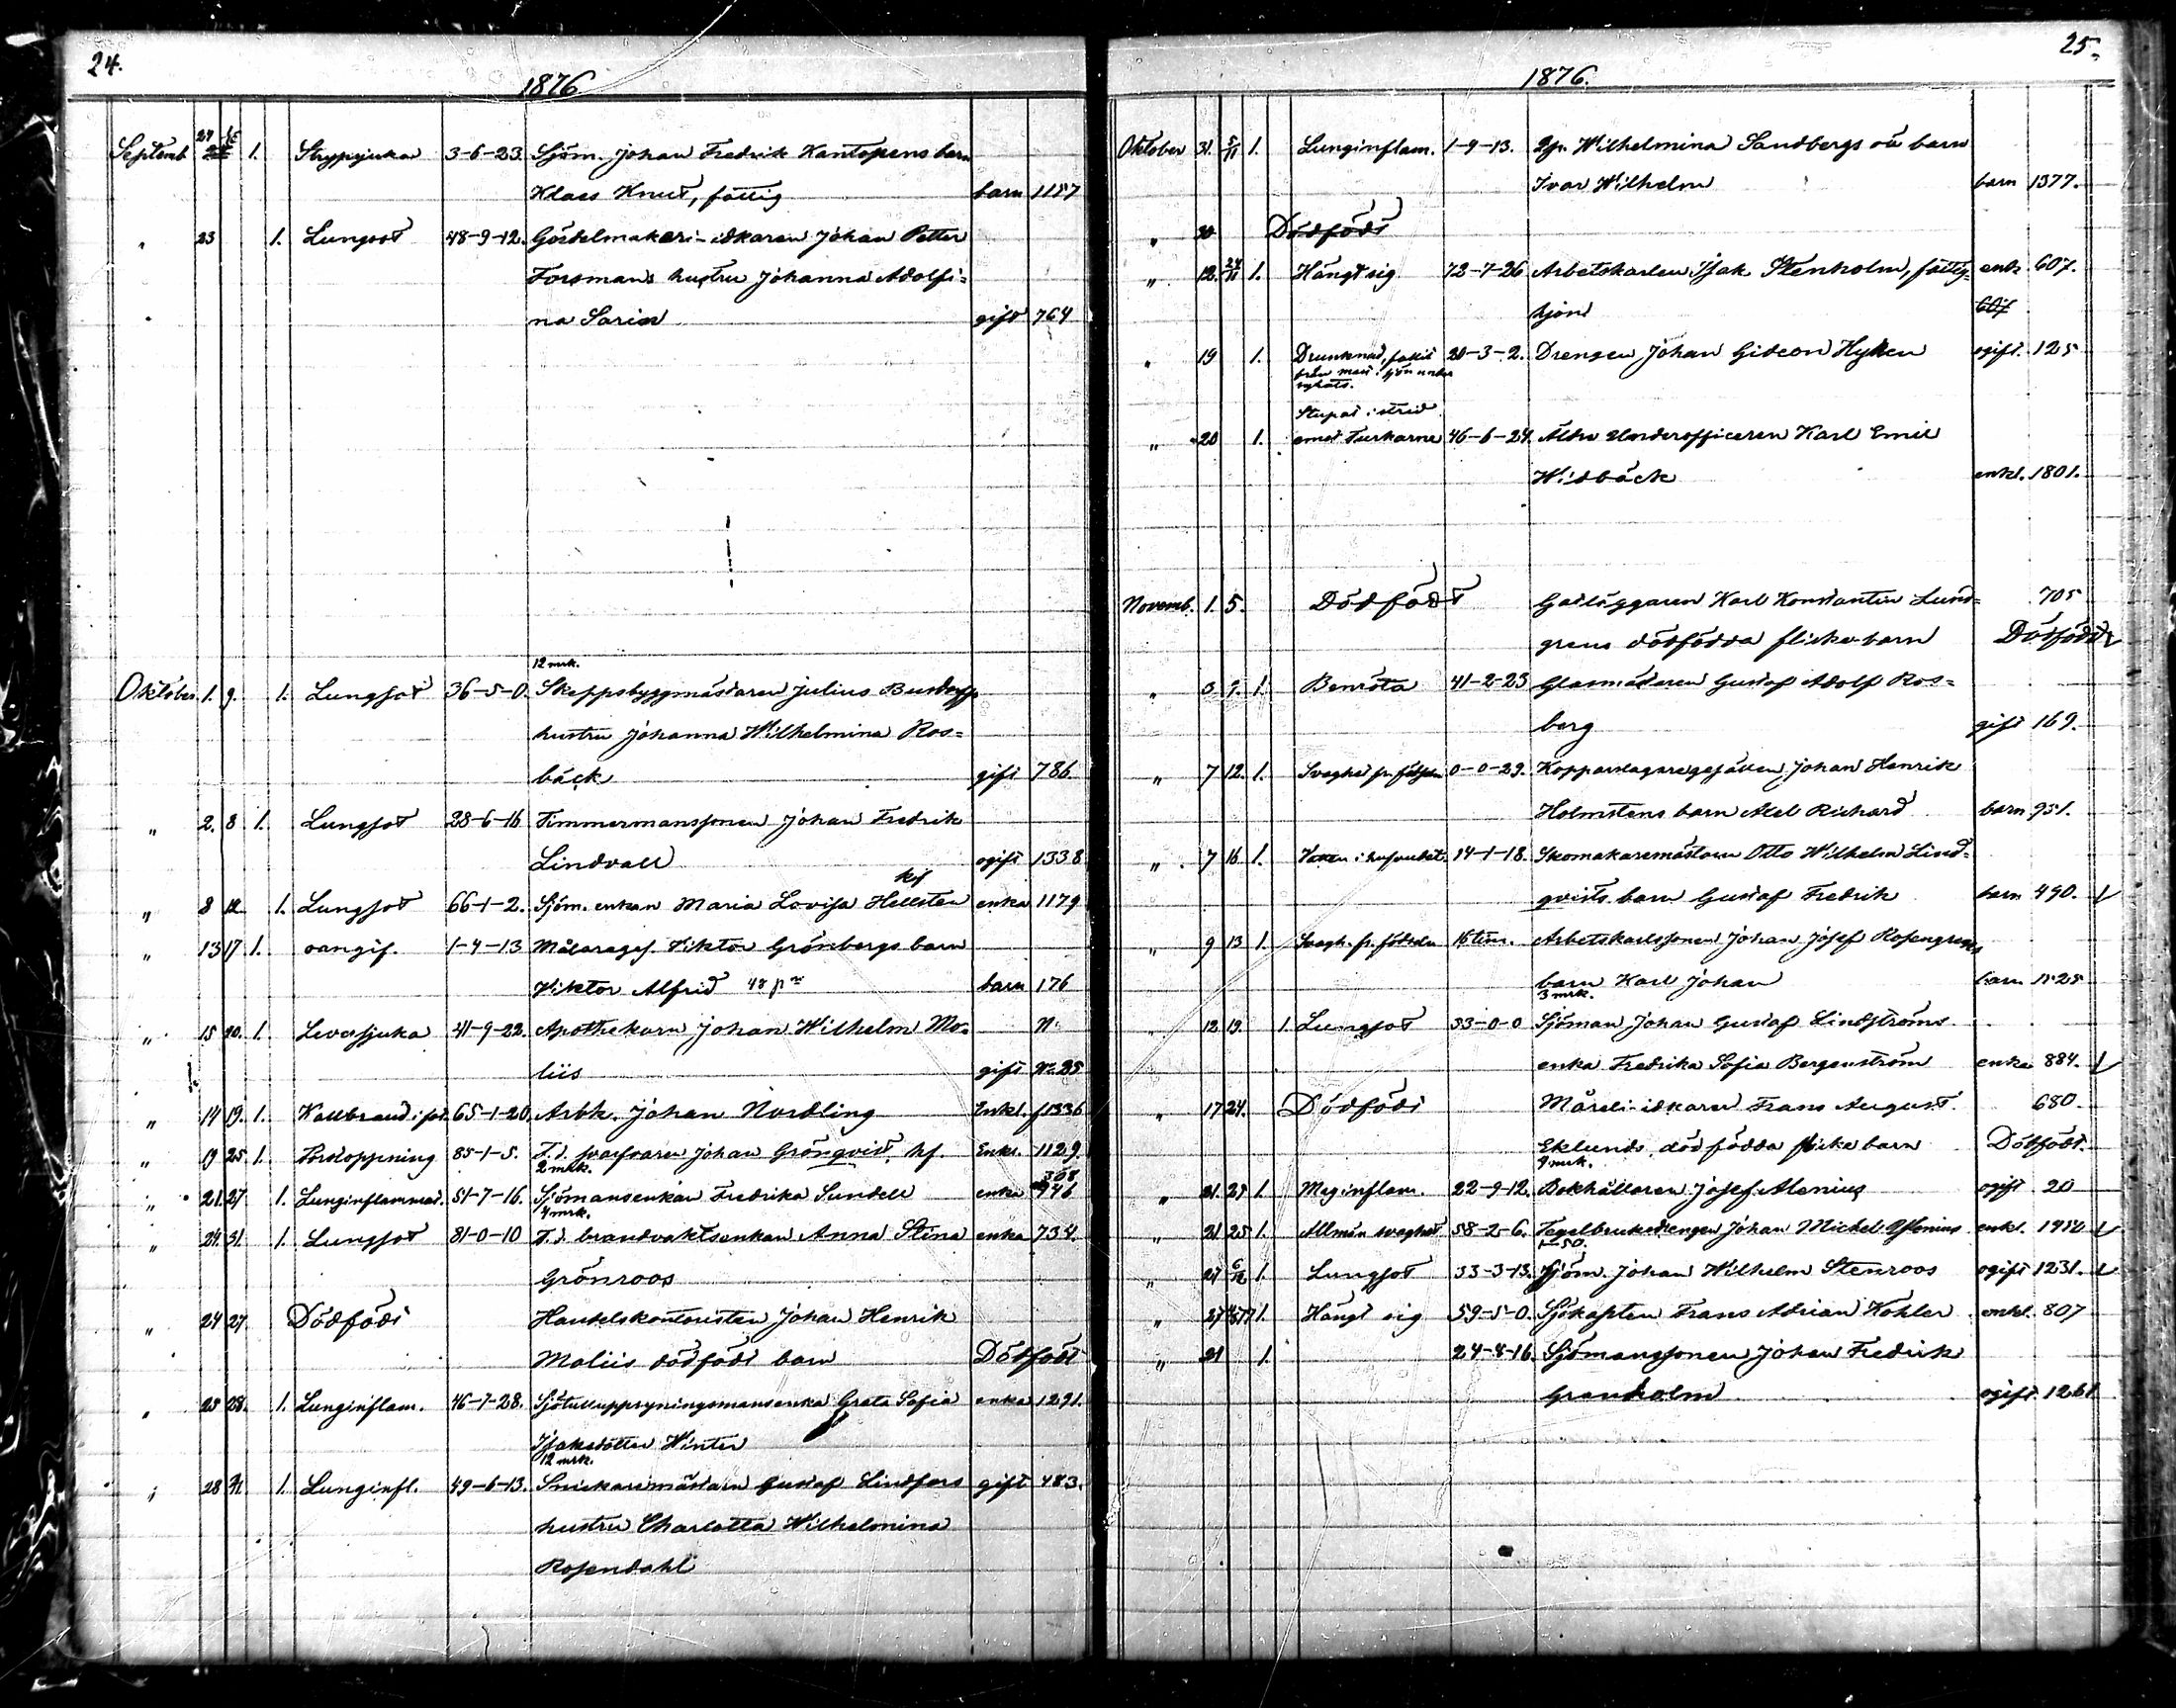 24.
1876
Septemb 27 1. Strypsjuka 3-6-23. Sjöm. Johan Fredrik Kantopens barn
Klaes Knut, fattig barn 1187
" 23 1. Lungsot 48-9-12. Gördelmakeri-idkaren Johan Petter
Forsmans hustru Johanna Adolfi-
na Sarin gift 764
12 mrk.
Oktober 1. 9. 1. Lungsot 36-5-0. Skeppsbyggmästaren Julius
hustru Johanna Wilhelmina Ros-
bäck gift 786
" 2. 8 1. Lungsot 28-6-16 Timmermanssonen Johan Fredrik
Lindvall ogift 1338
" 8 12. 1. Lungsot 66-1-2. Sjöm. enkan Maria Lovisa Hellsten enka 1179
" 13 17 1. oangif. 1-4-13 Målareges. Viktor Grönbergs barn
Viktor Alfrid 48 barn 176
" 15 20. 1. Lefversjuka 41-9-22. Apothekarn Johan Wilhelm Mo-
liis gift 25
" 14 19. 1. Kallbrand i fot. 65-1-20. Arbk. Johan Nordling Enkl. 1336
" 19 25 1. Förstoppning 85-1-5. F.d. svarfvaren Johan Grönqvist, hf. Enkl. 1129.
2 mrk. 308
" 21. 27 1. Lunginflammat. 51-7-16. Sjömansenkan Fredrika Sundell enka 946
4 mrk.
" 24. 31. 1. Lungsot 81-0-10 F.d. brandvaktsenkan Anna Stina enka 734.
Grönroos
" 24 27 Dödfödt Handelskontoristen Johan Henrik
Moliis dödfödt barn Dödfödt
" 25 28. 1. Lunginflam. 46-7-28. Sjötulluppsyningsmansenka Greta Sofia enka 1291.
Isaksdotter Winter
12 mrk.
" 28 31. 1. Lunginfl. 49-6-13. Snickaremästaren Gustaf Lindfors gift 483.
hustru Charlotta Wilhelmina
Rosendahl
25.
1876.
Oktober 31. 5/11 1. Lunginflam. 1-9-13. Wilhelmina Sandbergs oä barn
Ivar Wilhelm barn 1377.
" 30 Dödfödt
" 12. 24/11 1. Hängt sig 72-7-26 Arbetskarlen Isak Stenholm, fattig- enk. 607.
hjon 607
" 19 1. Drunknad, fallit 20-3-2. Drengen Johan Gideon Hyken ogift. 125
från mast i sjön under
seglats.
Stupat i strid
" 20 1. emot Turkarne 46-6-24. Äldre Underofficeren Karl Emil
Widbäck enkl. 1801.
Novemb. 1. 5. Dödfödt Karl Konstantin Lund- 705
grens dödfödda flickebarn Dödfödt
" 3. 9. 1. Benröta 41-2-23 Glasmästaren Gustaf Adolf Ros-
berg gift 169.
" 7 12. 1. Svaghet fr. födseln 0-0-29. Kopparslagaregesällen Johan Henrik
Holmstens barn Axel Richard barn 951.
" 7 16 1. 14-1-18. Skomakaremästaren Otto Wilhelm Lind-
qvists barn Gustaf Fredrik barn 490.
" 9 13 1. Svagh. fr. födseln 16 tim. Arbetskarlssonen Johan Josef Rosengrens
barn Karl Johan barn 1525
3 mrk.
" 12 19. 1. Lungsot 53-0-0 Sjöman Johan Gustaf Lindströms
enka Fredrika Sofia Bergenström enka 884.
" 17 24. Dödfödt Måleri-idkaren Frans August 680.
Eklunds dödfödda flicke barn Dödfödt.
9 mrk.
" 21. 29 1. Maginflam. 22-9-12. Bokhållaren Josef Alenius ogift 20
" 21 25 1. Allmän svaghet 58-2-6. Tegelbruksdrengen Johan Mickel enkl. 1950
1-50.
" 27 6/12 1. Lungsot 33-3-13. Sjöm. Johan Wilhelm Stenroos ogift 1231.
" 27 1. Hängt sig 59-5-0. Sjökapten Frans Adrian Köhler enkl. 807
" 21 1. 24-8-16. Sjömanssonen Johan Fredrik
Granholm ogift. 1261